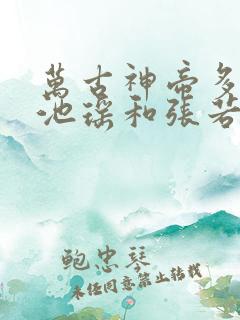 萬古神帝多
池瑤和張若
鲍忠琴
未经同意禁止转载